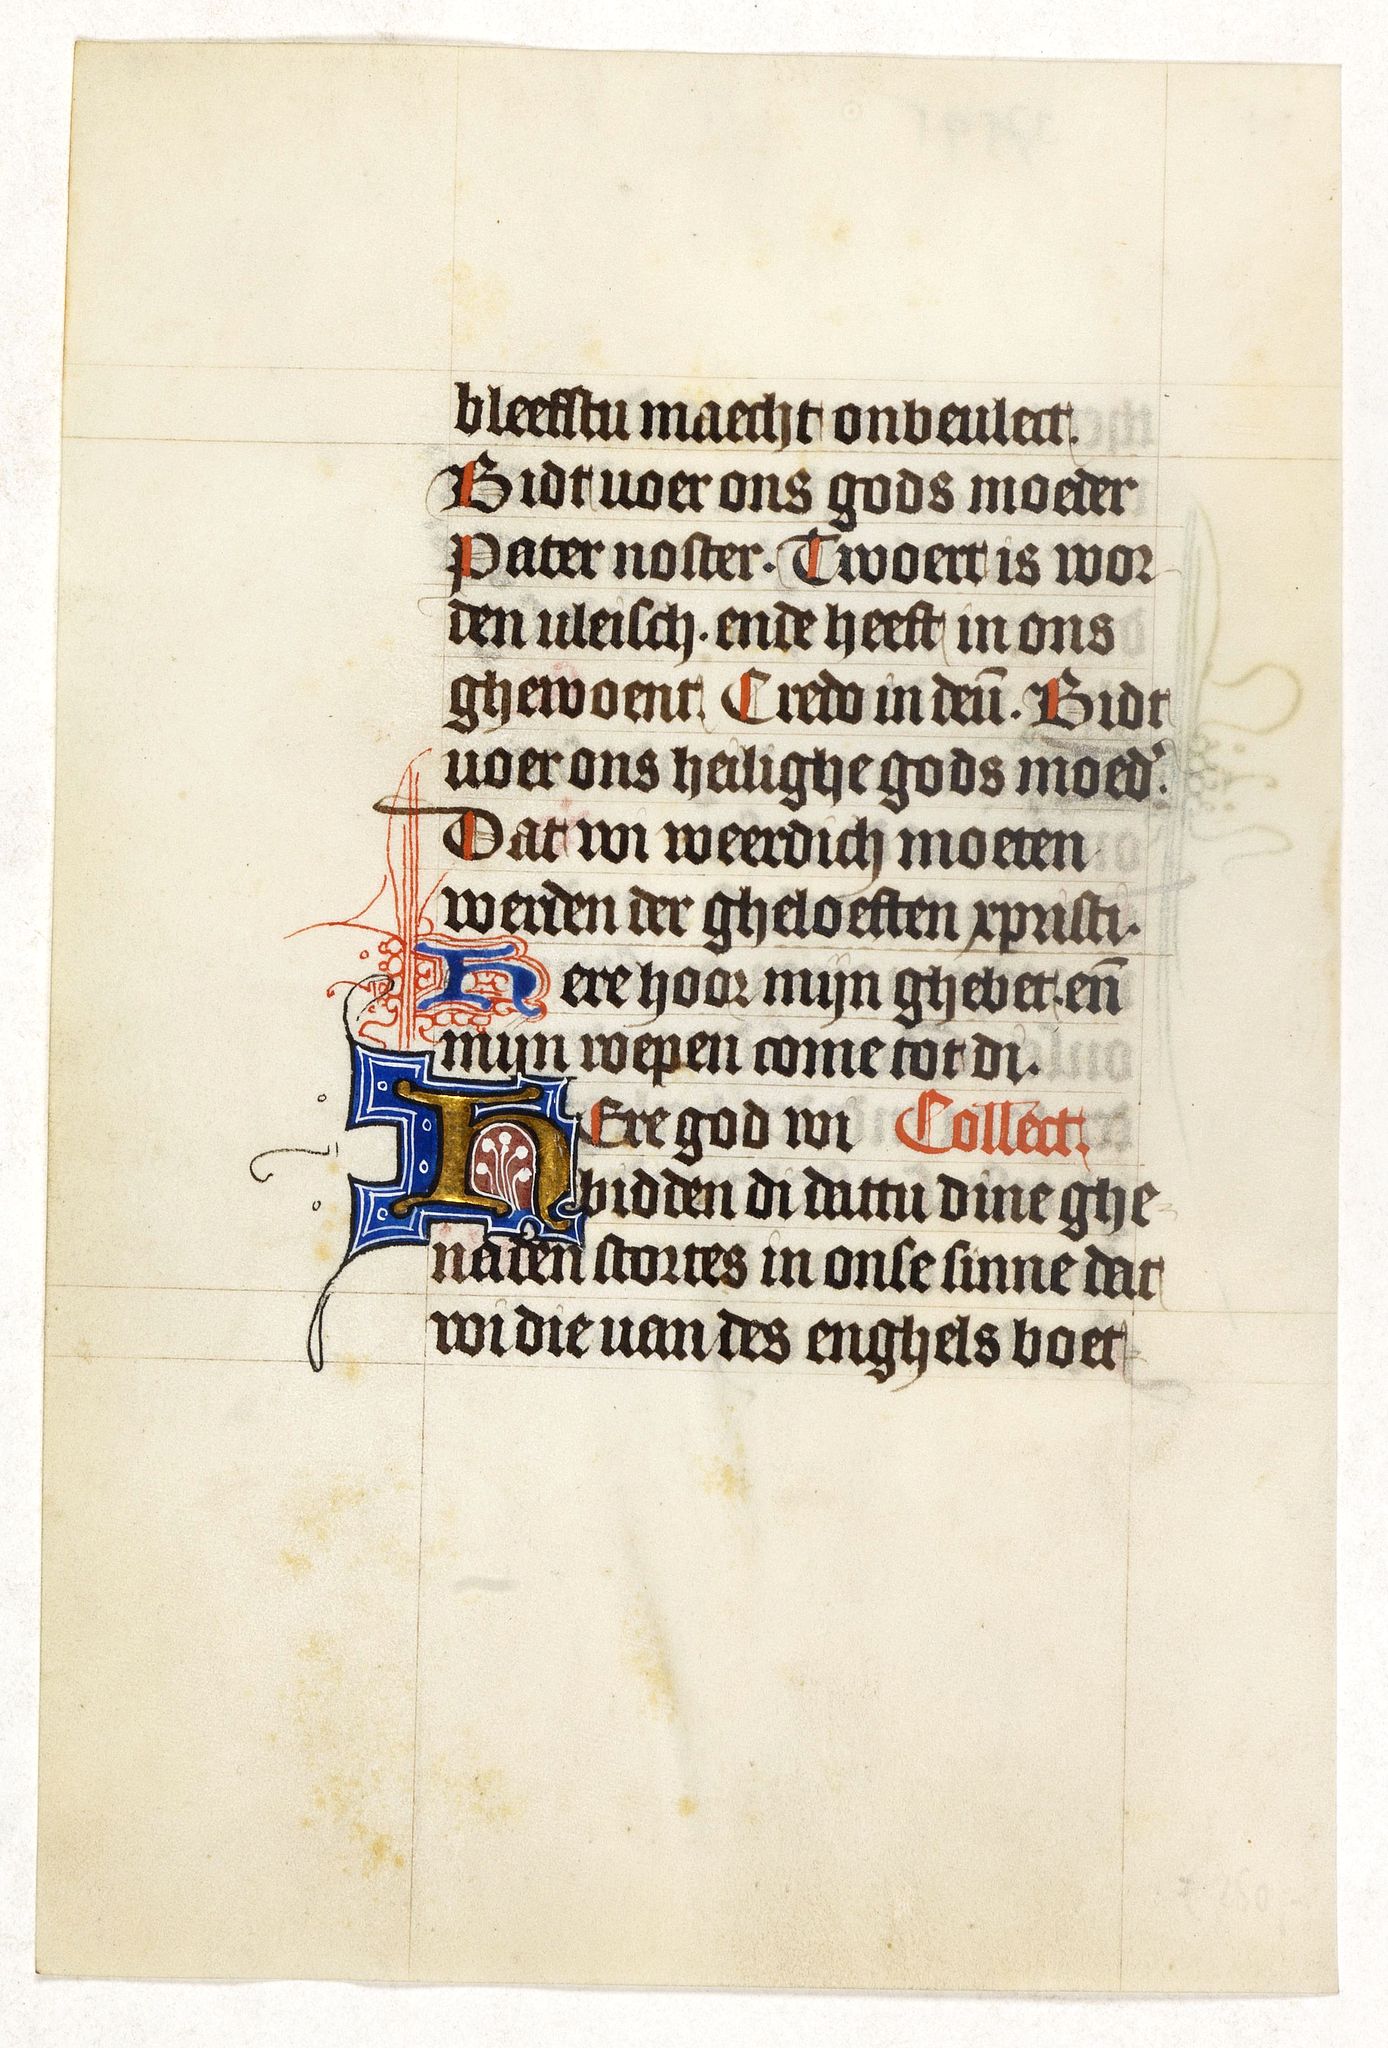 bleefstu maecht onbeulect.
Bidt uoer ons gods moeder
Pater noster. Twoert is wor
den uleisch. ende heeft in ons
ghewoent. Credo in deū. Bidt
uoer ons heilighe gods moed'.
Dat wi weerdich moeten
werden der gheloeften xpristi.
Here hoor mijn ghebet. en̄
mijn roepen come tot di.
HEre god wi Collect.
bidden di dattu dine ghe
naden stortes in onse sinne dat
wi die uan des enghels boet